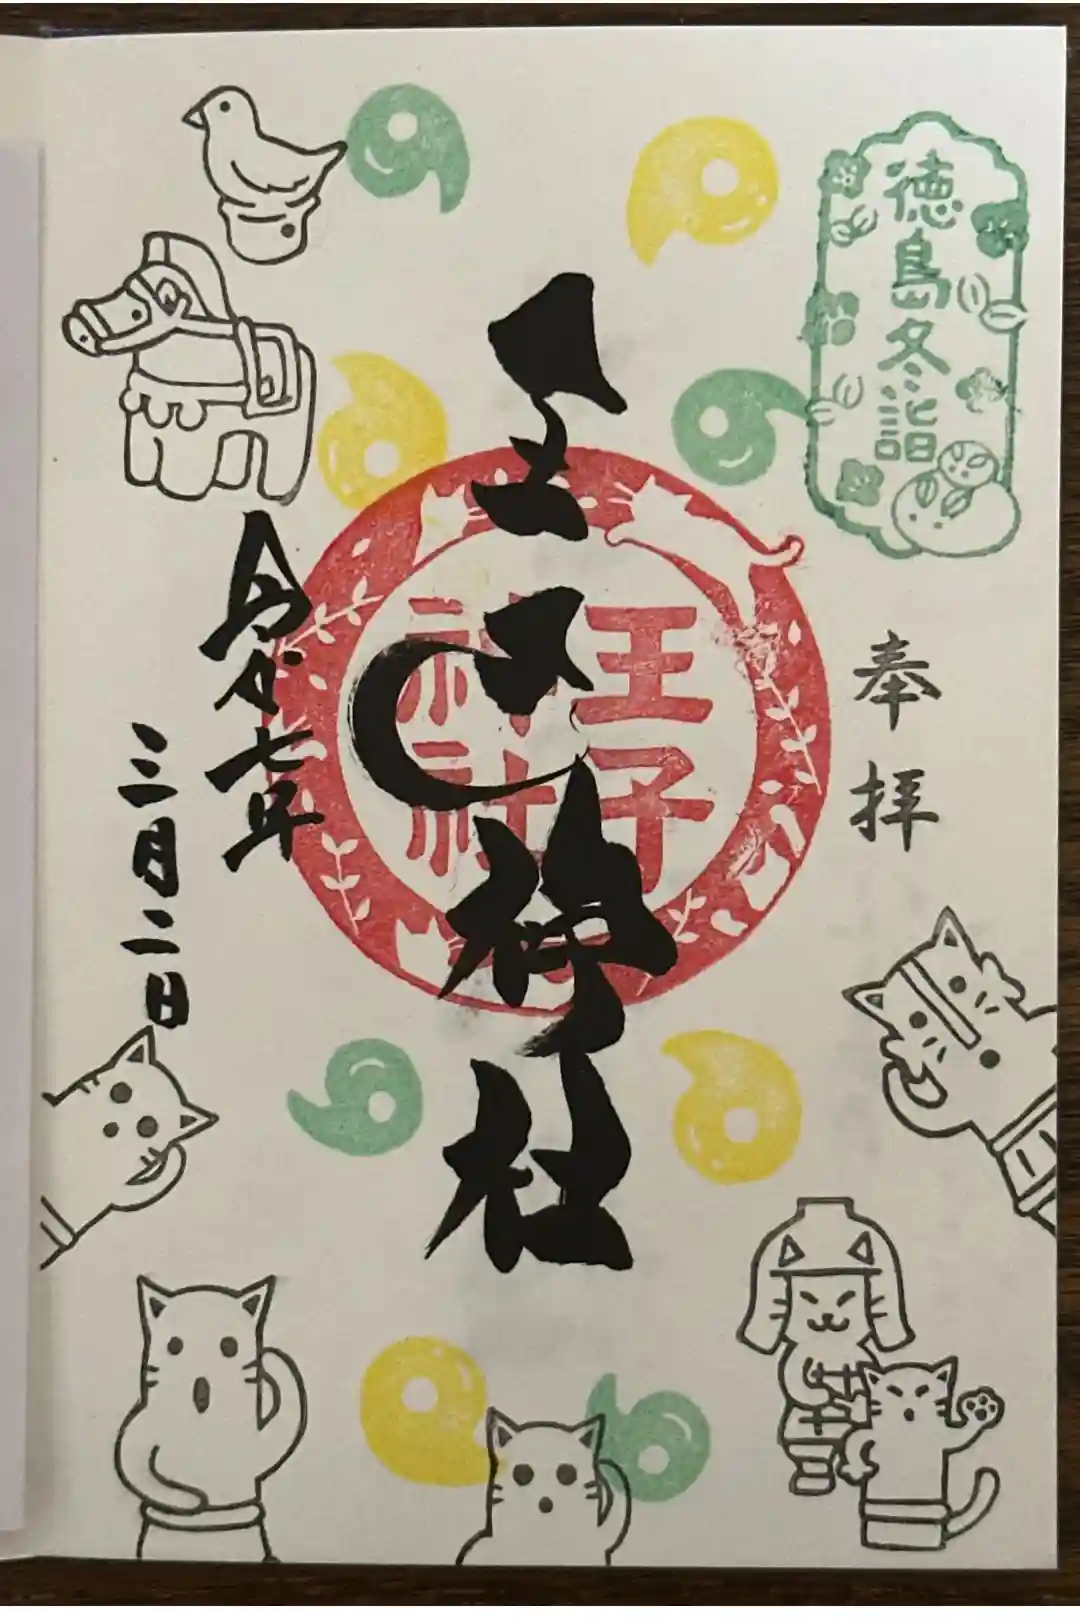 徳島冬詣
奉拝
王子神社
王子神社
令和七年
三月二日